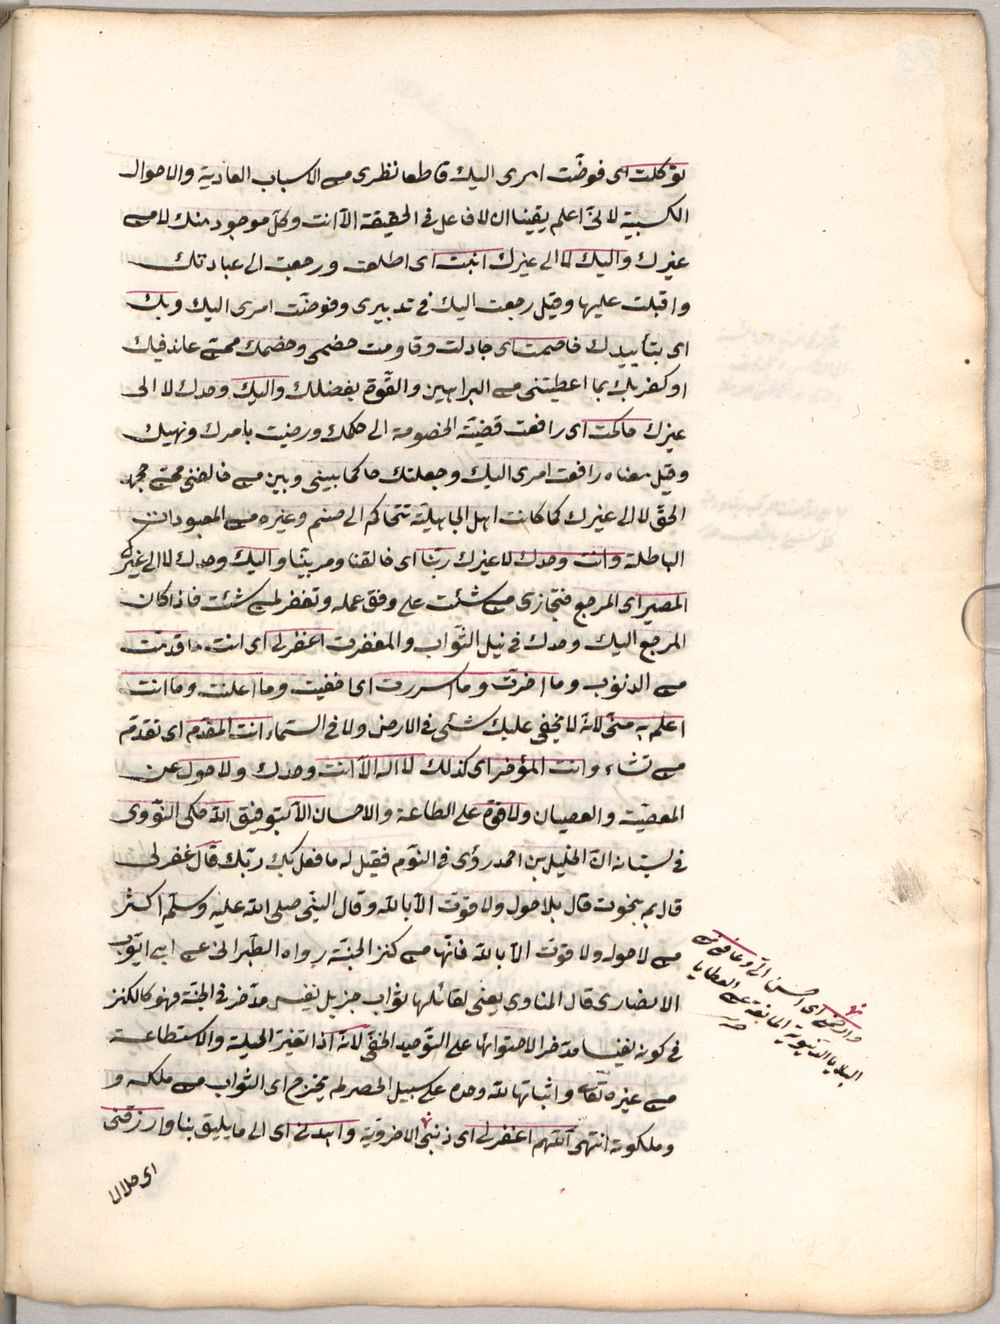 توكلت اى فوضت امرى اليك قاطعا نظرى من الاسباب العادية والاحوال
الكسبية لانى اعلم يقينا ان لا فاعل فى الحقيقة الا انت وكل موجود منك لا من
غيرك واليك لا الى غيرك انبت اى اطلعت ورجعت الى عبادتك
واقبلت عليها وقيل رجعت اليك فى تدبيرى وفوضت امرى اليك وبك
اى بتأييدك خاصمت اى جادلت وقاومت خصمى وخصمك ممن عاند فيك
او كفر بك بما اعطيتنى من البراهين والقوة بفضلك واليك وحدك لا الى
غيرك حاكمت اى رافعت قضية الخصومة الى حكمك ورضيت بامرك ونهيك
وقيل معناه رافعت امرى اليك وجعلتك حاكما بينى وبين من خالفنى ممن جحد
الحق لا الى غيرك كما كانت اهل الجاهلية تتحاكم الى صنم وغيره من المعبودات
الباطلة وانت وحدك لا غيرك ربنا اى خالقنا ومربينا واليك وحدك لا الى غيرك
المصير اى المرجع فتجازى من شئت على وفق عمله وتغفر لمن شئت فاذا كان
المرجع اليك وحدك فى نيل الثواب والمغفرت اغفر لى اى انت ما قدمت
من الذنوب وما اخرت وما اسررت اى خفيت وما اعلنت وما انت
اعلم به منى لانه لا يخفى عليك شئ فى الارض ولا فى السماء انت المقدم اى تقدم
من تشاء وانت المؤخر اى كذلك لا اله الا انت وحدك ولا حول عن
المعصيت والعصيان ولا قوة على الطاعة والاحسان الا بتوفيق الله حكى النووى
فى بستانه ان الخليل بن احمد رؤى فى النوم فقيل له ما فعل بك ربك قال غفر لى
قال بم نجوت قال بلا حول ولا قوت الا بالله وقال النبى صلى الله عليه وسلم اكثر
من لا حول ولا قوت الا بالله فانها من كنز الجنة رواه الطبرانى عن ابى ايوب
الانصارى قال المناوى يعنى لقائلها ثواب جزيل نفيس مدخر فى الجنة فهو كالكنز
فى كونه نفيسا مدخرا لاحتوائها على التوحيد الخفى لانه اذا نفيت الحيلة والاستطاعة
من غيره تعالى واثباتها لله وحده على سبيل الحصر لم يخرج اى الثواب من ملكه و
وملكوته انتهى اللهم اغفر لى اى ذنبى الاخروية واهدنى اى الى ما يليق بنا وارزقنى
اى حلالا
وارحمنى اى احسن الى وعافنى من
البلايا الدنيوية المانعة عن العطايا